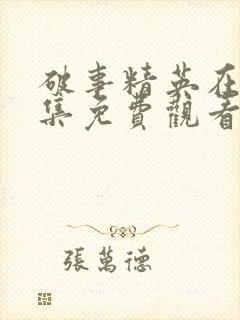 破事精英在
集免費觀看
張萬德